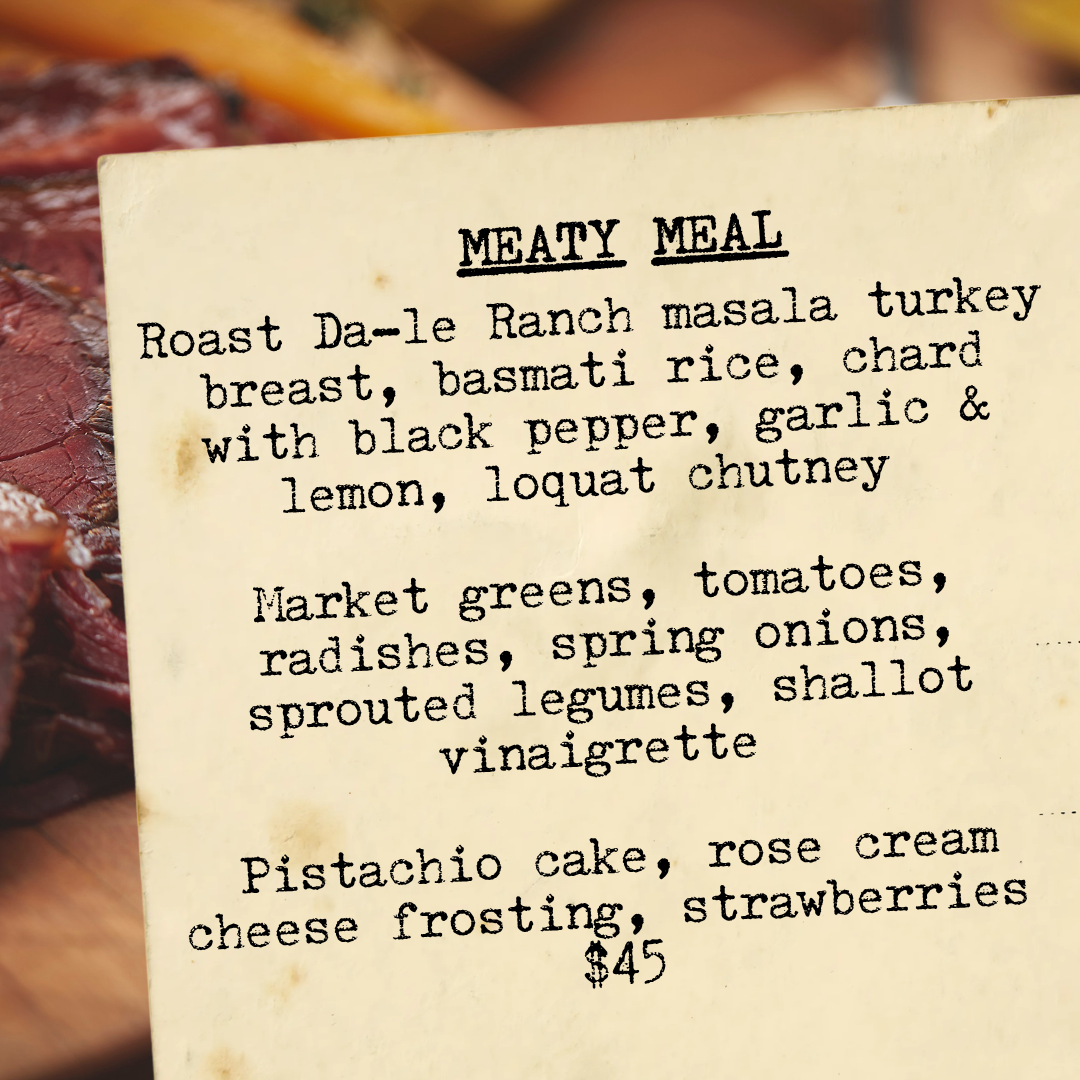 MEATY MEAL
Roast Da-le Ranch masala turkey
breast, basmati rice, chard
with black pepper, garlic &
lemon, loquat chutney
Market greens, tomatoes,
radishes, spring onions,
sprouted legumes, shallot
vinaigrette
Pistachio cake, rose cream
cheese frosting, strawberries
$45